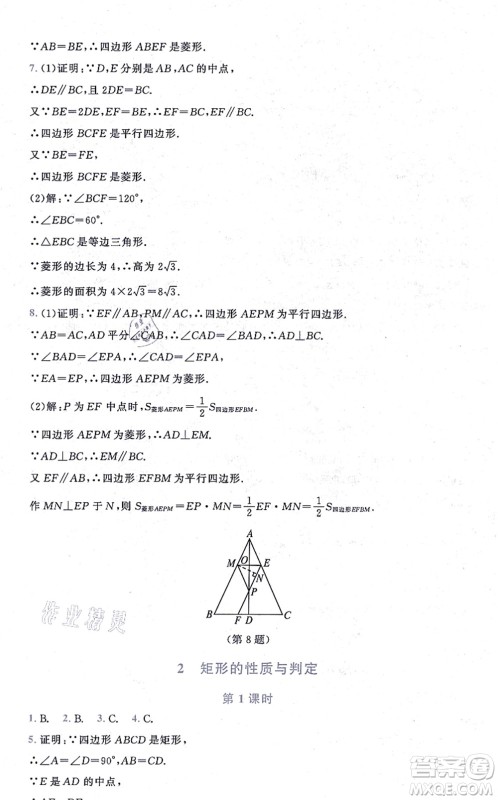 ∵AB=BE,∴四边形 ABEF 是菱形.
7.(1)证明:∵D,E 分别是 AB,AC 的中点,
∴DE∥BC. 且 2DE=BC.
又∵BE=2DE,EF=BE,∴EF=BC,EF∥BC.
∴四边形 BCFE 是平行四边形.
又∵BE=FE,
∴四边形 BCFE 是菱形.
(2)解:∵∠BCF=120°,
∴∠EBC=60°.
∴△EBC 是等边三角形.
∴菱形的边长为 4,∴高为 2√3.
∴菱形的面积为 4×2√3=8√3.
8.(1)证明:∵EF∥AB,PM∥AC,∴四边形 AEPM 为平行四边形.
∵AB=AC,AD 平分∠CAB,∴∠CAD=∠BAD,AD⊥BC.
∵∠BAD=∠EPA,∴∠CAD=∠EPA.
∵EA=EP,∴四边形 AEPM 为菱形.
(2)解:P 为 EF 中点时,S菱形AEPM=1/2 S四边形EFBM.
∵四边形 AEPM 为菱形,∴AD⊥EM.
∵AD⊥BC,∴EM∥BC.
又 EF∥AB,∴四边形 EFBM 为平行四边形.
作 MN⊥EP 于 N,则 S菱形AEPM=EP·MN=1/2 EF·MN=1/2 S四边形EFBM.
A
M O E
N
P
B F D C
(第 8 题)
作业精灵
2 矩形的性质与判定
第 1 课时
1. B. 2. B. 3. C. 4. C.
5. 证明:∵四边形 ABCD 是矩形,
∴∠A=∠D=90°,AB=CD.
∵E 是 AD 的中点,
答案圈